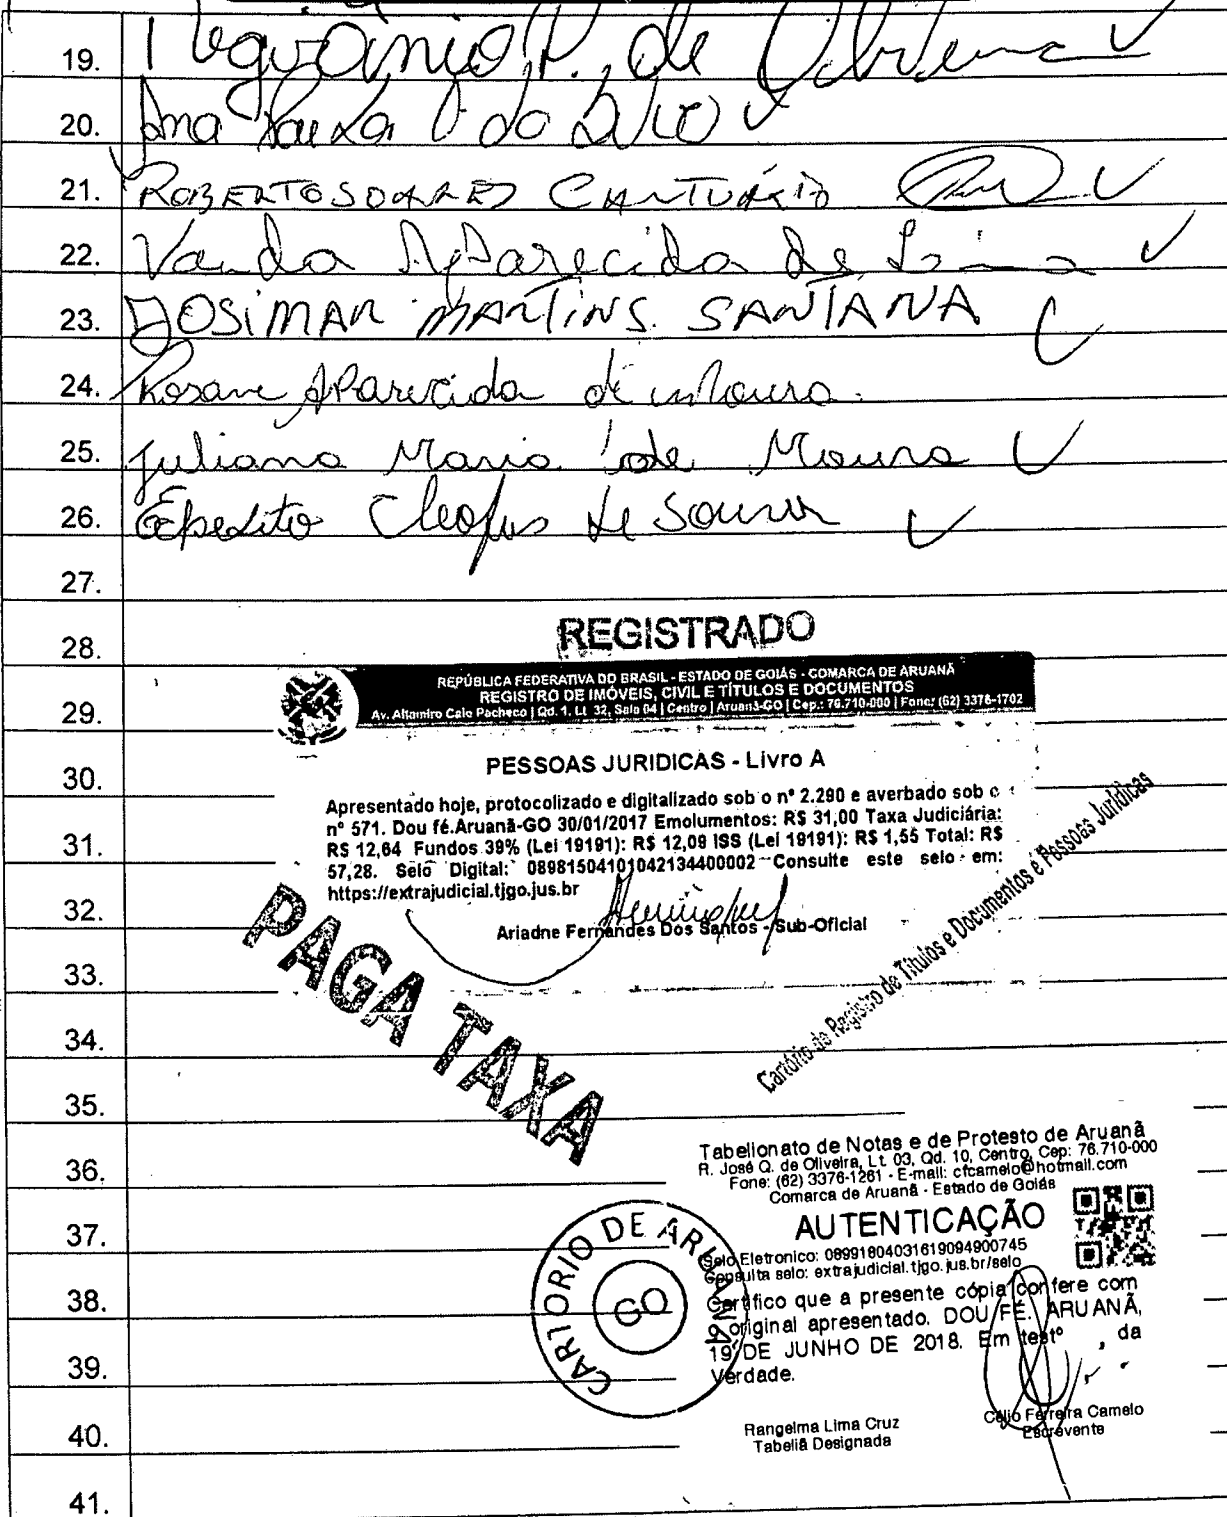 19. P. de Oliveira
20. Ana Paula
21. ROBERTO SOARES CANTUÁRIO
22. Vanda Aparecida de Lima
23. JOSIMAR MARTINS SANTANA
24. Rosane Aparecida de Moura
25. Juliana Maria de Moura
26. Cleofus de Souza
27.
28.
REGISTRADO
REPÚBLICA FEDERATIVA DO BRASIL - ESTADO DE GOIÁS - COMARCA DE ARUANÃ
REGISTRO DE IMÓVEIS, CIVIL E TÍTULOS E DOCUMENTOS
Av. Altamiro Caio Pacheco | Qd. 1, Lt. 32, Sala 04 | Centro | Aruanã-GO | Cep.: 76.710-000 | Fone: (62) 3376-1702
29.
30.
PESSOAS JURIDICAS - Livro A
Apresentado hoje, protocolizado e digitalizado sob o nº 2.290 e averbado sob o
nº 571. Dou fé.Aruanã-GO 30/01/2017 Emolumentos: R$ 31,00 Taxa Judiciária:
31.
R$ 12,64 Fundos 39% (Lei 19191): R$ 12,09 ISS (Lei 19191): R$ 1,55 Total: R$
57,28. Selo Digital: 08981504101042134400002 Consulte este selo em:
https://extrajudicial.tjgo.jus.br
32.
Ariadne Fernandes Dos Santos - Sub-Oficial
33.
PAGA TAXA
Cartório de Registro de Títulos e Documentos e Pessoas Jurídicas
34.
35.
36.
Tabelionato de Notas e de Protesto de Aruanã
R. José Q. de Oliveira, Lt. 03, Qd. 10, Centro, Cep: 76.710-000
Fone: (62) 3376-1261 - E-mail: cfcamelo@hotmail.com
Comarca de Aruanã - Estado de Goiás
37.
AUTENTICAÇÃO
CARTORIO DE ARUANÃ
GO
Selo Eletronico: 08991804031619094900745
Consulta selo: extrajudicial.tjgo.jus.br/selo
38.
Certifico que a presente cópia confere com
o original apresentado. DOU FÉ. ARUANÃ,
19 DE JUNHO DE 2018. Em testº , da
39.
Verdade.
40.
Rangelma Lima Cruz
Tabeliã Designada
Célio Ferreira Camelo
Escrevente
41.